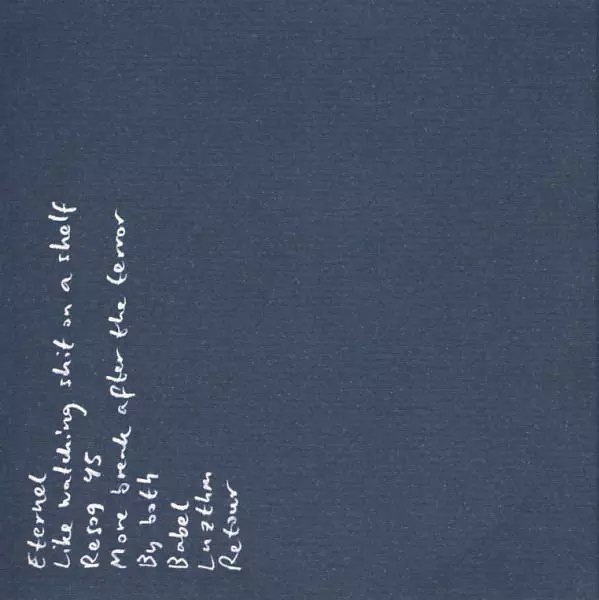 Eternel
Like watching shit on a shelf
Resog 45
More break after the terror
By both
Babel
Luzthm
Retour